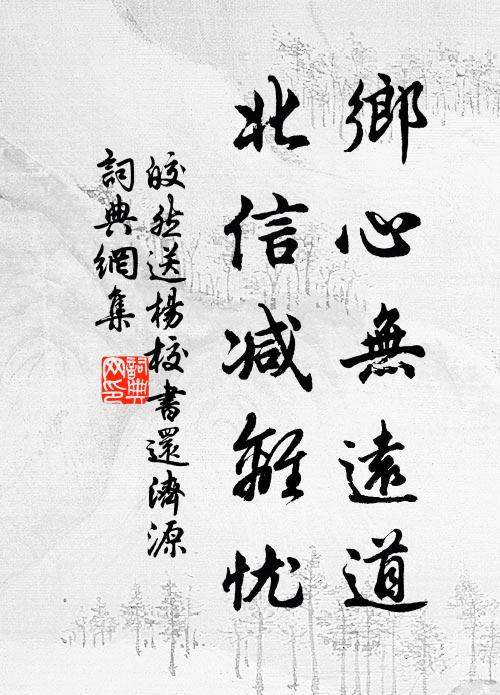 鄉心無遠道
北信减離忧
皎然送楊校書還濟源
詞典網集
詞典
网印